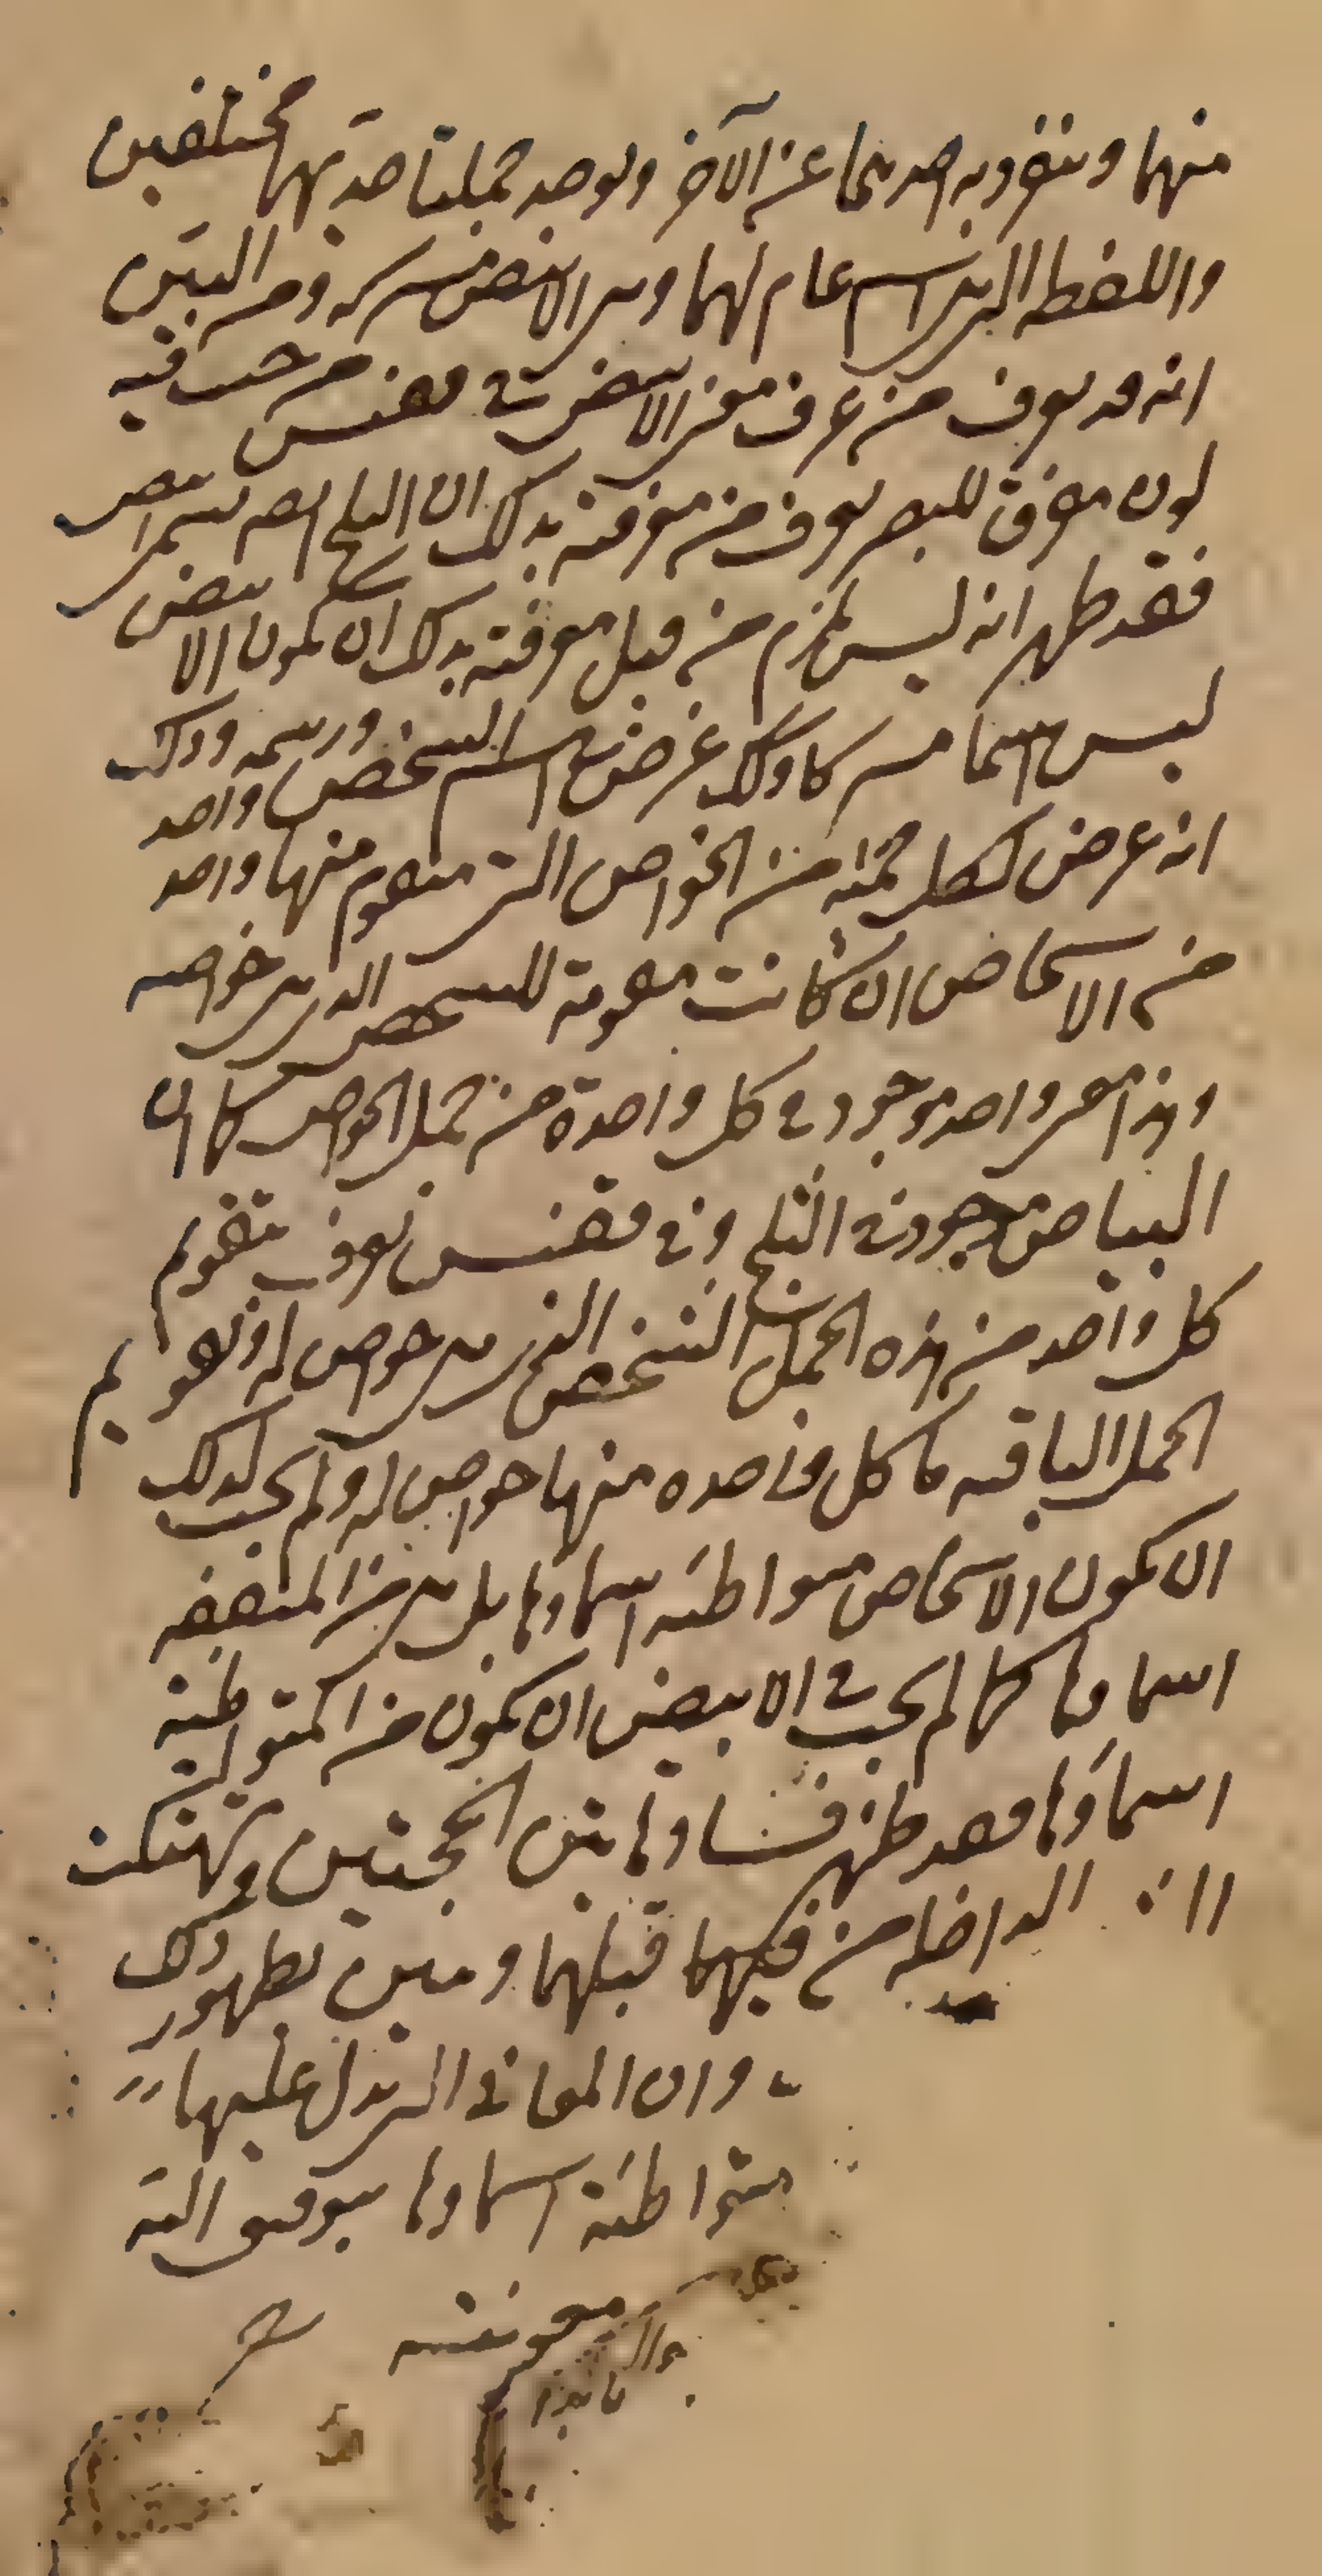 منهما وينفرد به احدهما عن الآخر ويوجد جملتا حديهما مختلفين
واللفظه التي هي اسم عام لهما وهي الابيض مشتركه ومن البين
انه قد يعرف من عرف معنى الابيض في ققنس من حيث فيه
لون مفرق للبصر يعرف من معرفته بذلك ان الثلج ايضا يسمى ابيض
فقد ظهر انه ليس يلزم من قبل معرفته بذلك ان يكون الابيض
ليس اسما مشتركا وكذلك عرض في اسم الشخص ورسمه وذلك
انه عرض لكل جملة من الخواص التي تتقوم منها واحد واحد
من الاشخاص ان كانت مقومة للشخص الذي هي خواصه
وهذا معنى واحد موجود في كل واحدة من جمل الخواص كما ان
البياض موجود في الثلج وفي ققنس نعرف بتقويم
كل واحد من هذه الجمل الشخص الذي هي خواص له وتقويم
الجمل الباقيه ما كل واحده منها خواص له ولم يجب لذلك
ان يكون الاشخاص متواطئه اسماؤها بل هي من المتفقه
اسماؤها كما لم يجب في الابيض ان يكون من المتواطئة
اسماؤها فقد ظهر فساد هاتين الحجتين وتهتكت
الداخله من قبلهما وتبين بظهور ذلك
وان المعاني التي تدل عليها
متواطئة اسماؤها بتوفيق الله
ومعونته